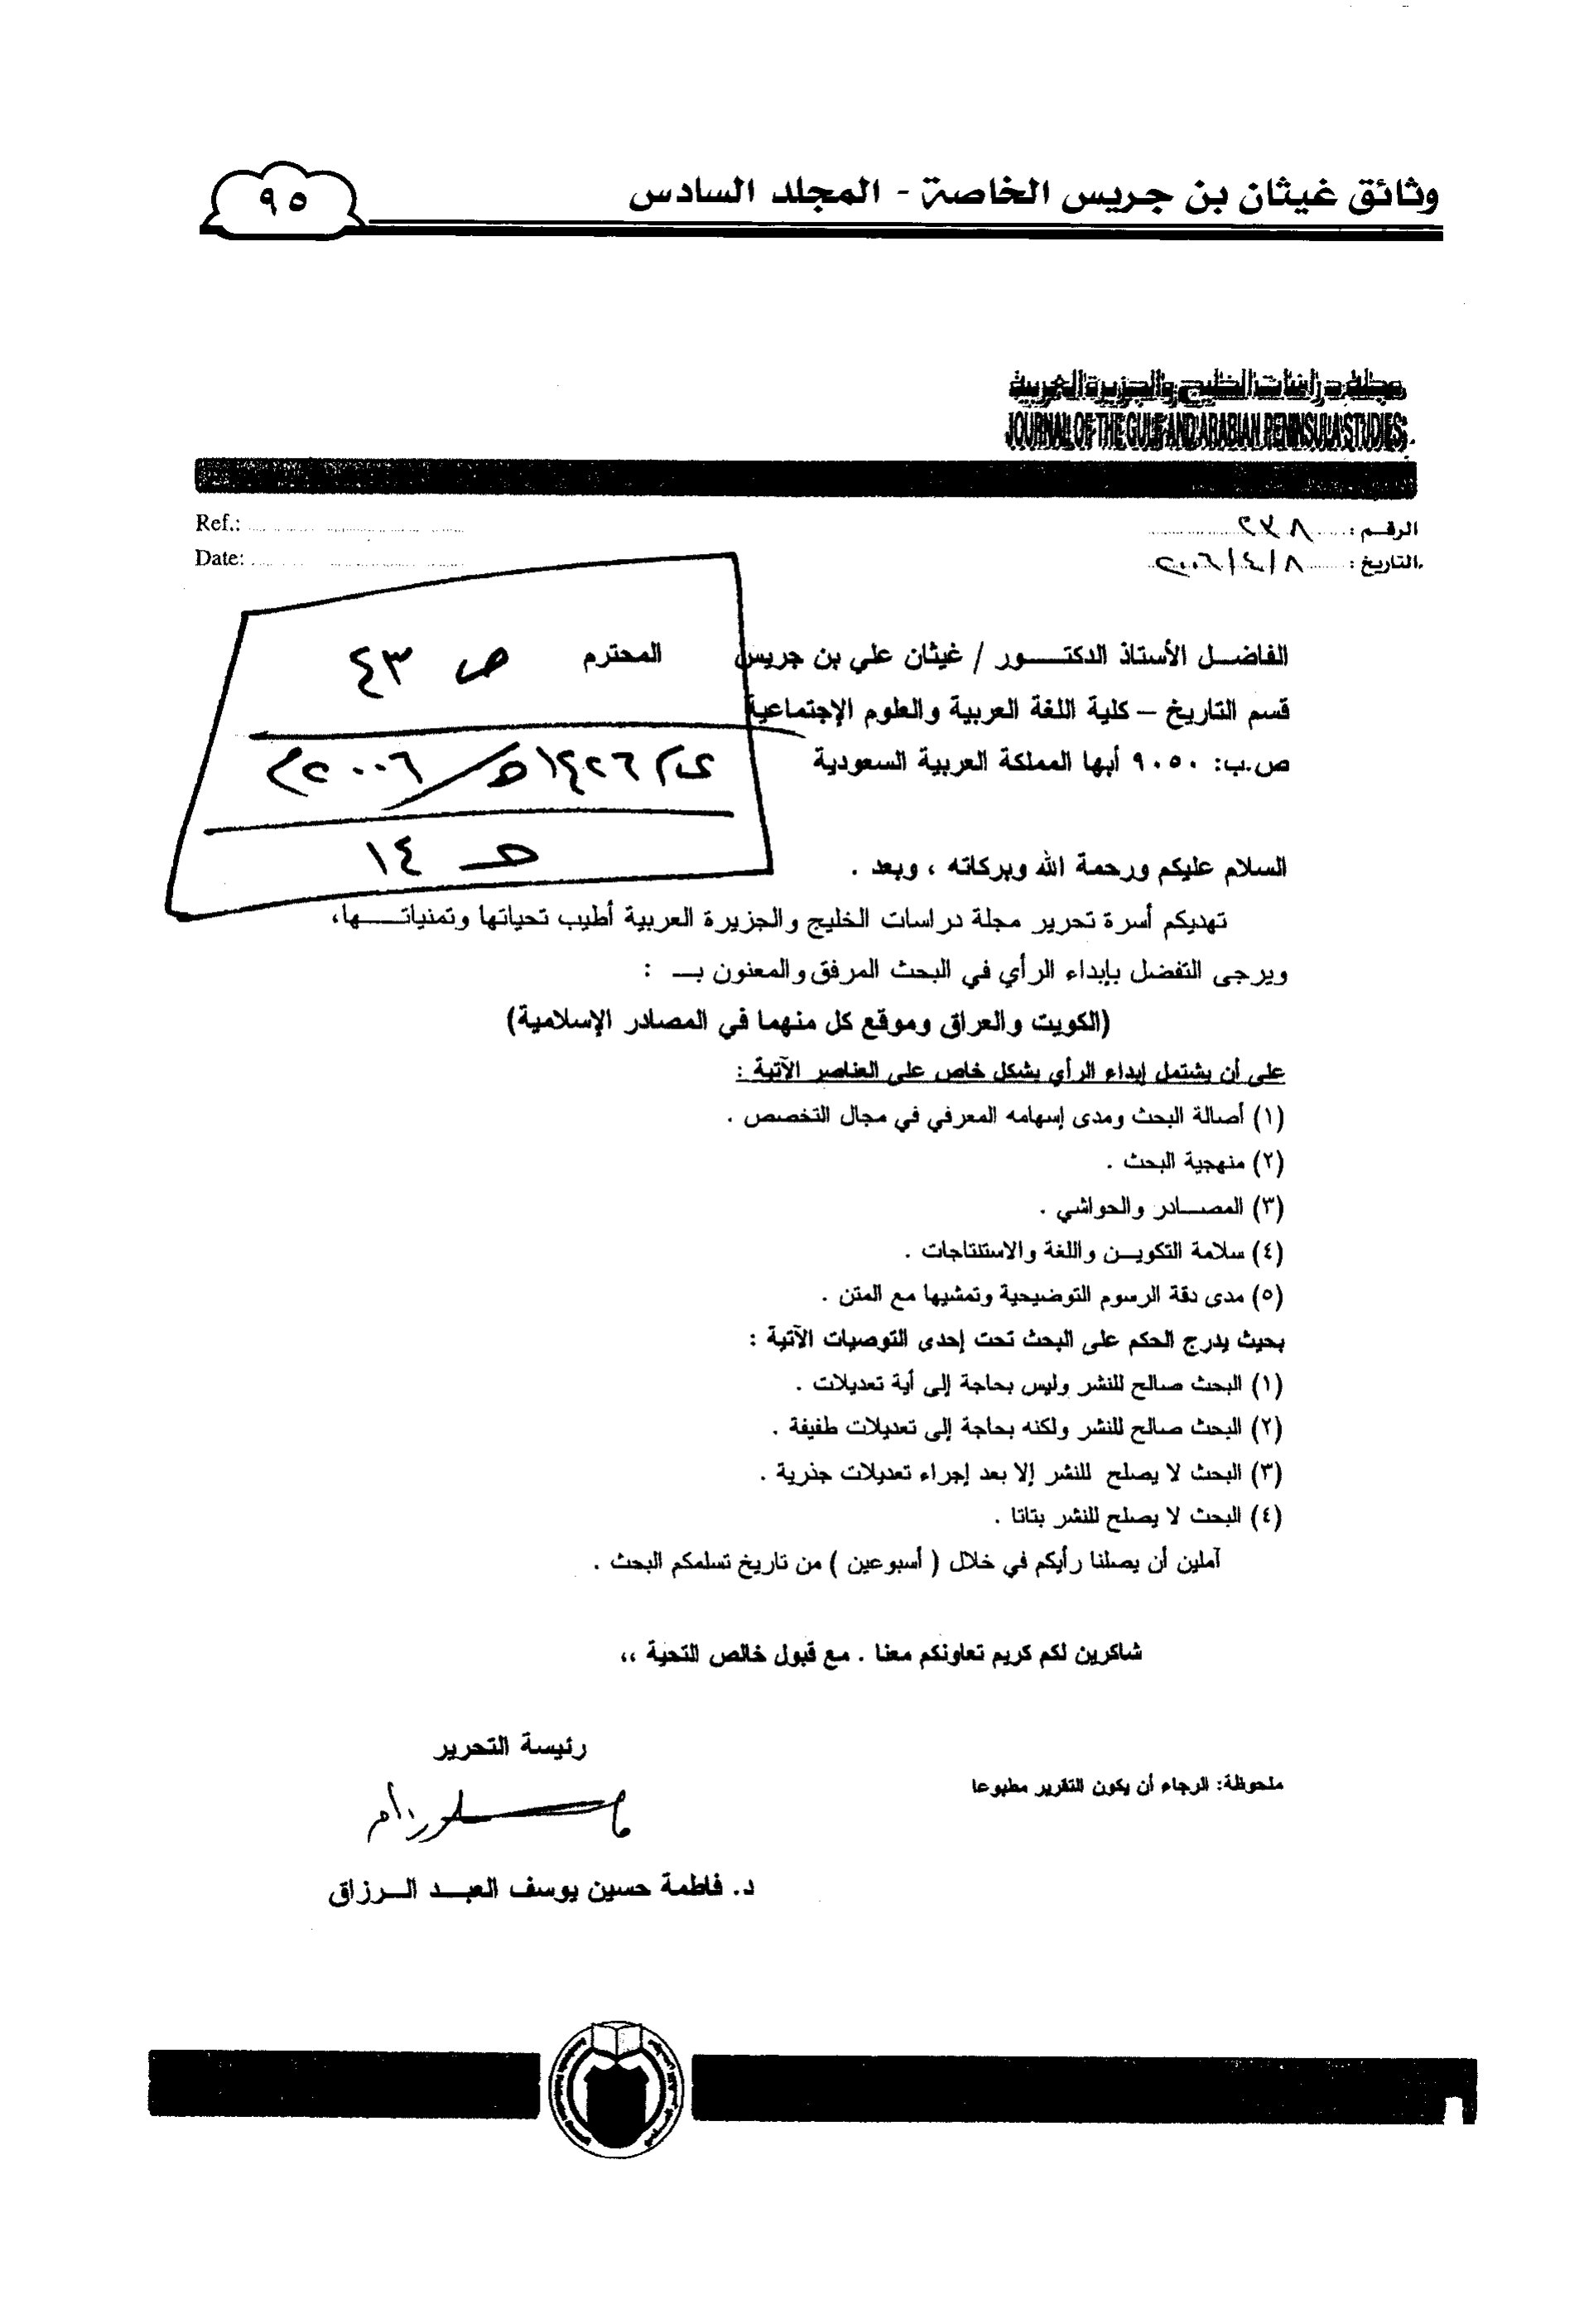 وثائق غيثان بن جريس الخاصة - المجلد السادس
٩٥
مجلة دراسات الخليج والجزيرة العربية
JOURNAL OF THE GULF AND ARABIAN PENINSULA STUDIES
الرقـم :
Ref.:
التاريخ : ٨/٤/٢٠٠٦
Date:
الفاضـل الأستاذ الدكتـــور / غيثان علي بن جريس المحترم
ص ٤٣
قسم التاريخ – كلية اللغة العربية والعلوم الإجتماعية
ص.ب: ٩٠٥٠ أبها المملكة العربية السعودية
١٤٢٦هـ/٢٠٠٦م
ص ١٤
السلام عليكم ورحمة الله وبركاته ، وبعد .
تهديكم أسرة تحرير مجلة دراسات الخليج والجزيرة العربية أطيب تحياتها وتمنياتـــها،
ويرجى التفضل بإبداء الرأي في البحث المرفق والمعنون بــ :
(الكويت والعراق وموقع كل منهما في المصادر الإسلامية)
على أن يشتمل إبداء الرأي بشكل خاص على العناصر الآتية :
(١) أصالة البحث ومدى إسهامه المعرفي في مجال التخصص .
(٢) منهجية البحث .
(٣) المصــادر والحواشي .
(٤) سلامة التكويــن واللغة والاستنتاجات .
(٥) مدى دقة الرسوم التوضيحية وتمشيها مع المتن .
بحيث يدرج الحكم على البحث تحت إحدى التوصيات الآتية :
(١) البحث صالح للنشر وليس بحاجة إلى أية تعديلات .
(٢) البحث صالح للنشر ولكنه بحاجة إلى تعديلات طفيفة .
(٣) البحث لا يصلح للنشر إلا بعد إجراء تعديلات جذرية .
(٤) البحث لا يصلح للنشر بتاتا .
آملين أن يصلنا رأيكم في خلال ( أسبوعين ) من تاريخ تسلمكم البحث .
شاكرين لكم كريم تعاونكم معنا . مع قبول خالص التحية ،،
رئيسة التحرير
ملحوظة: الرجاء أن يكون التقرير مطبوعا
د. فاطمة حسين يوسف العبــد الــرزاق